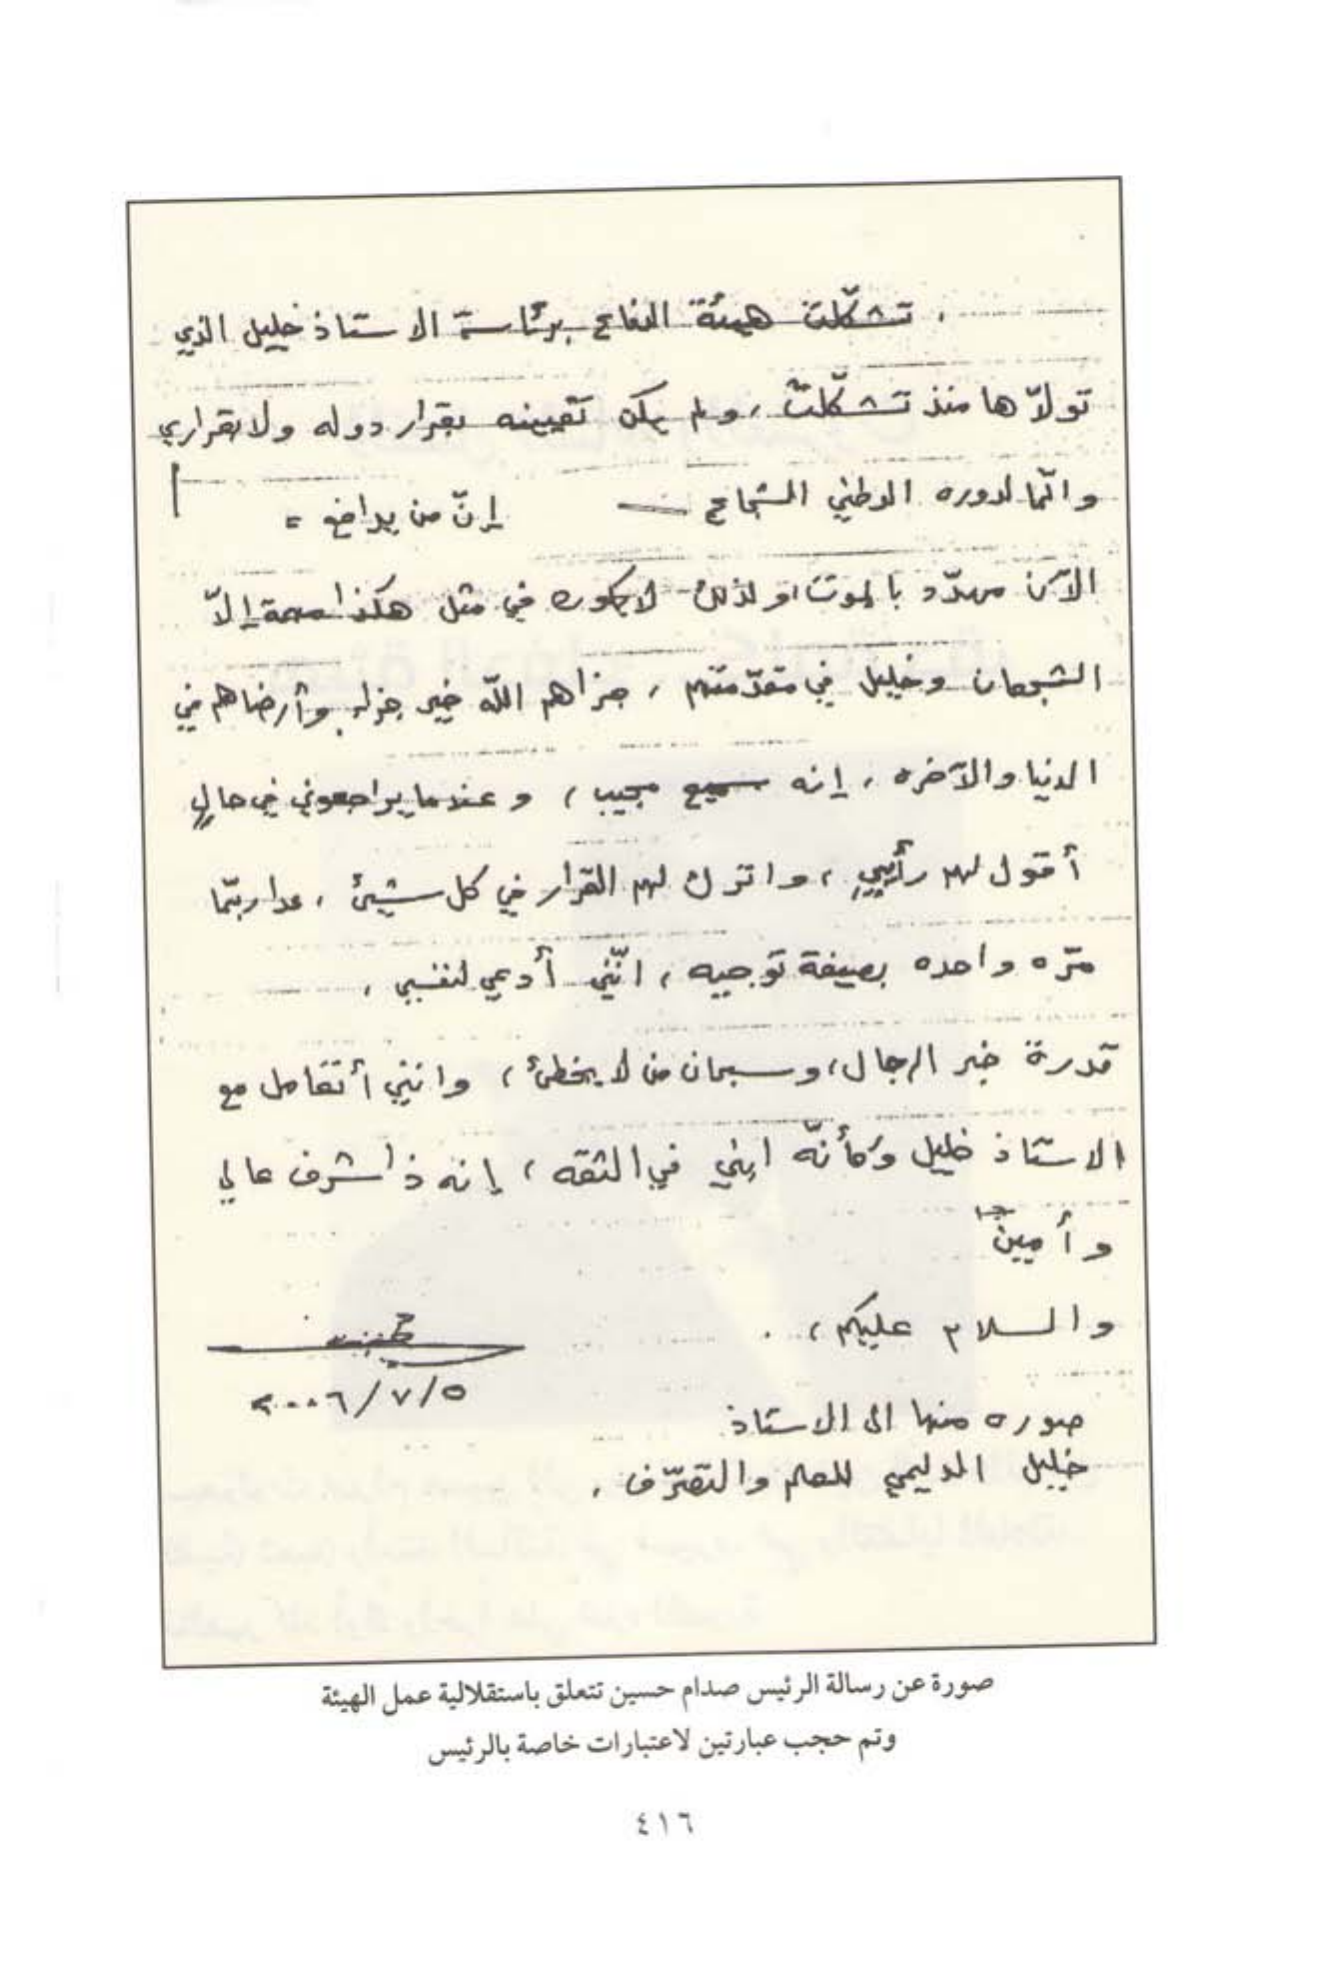 . تشكّلت هيئة الدفاع برئاسة الاستاذ خليل الذي
تولاّها منذ تشكّلت ، ولم يكن تعيينه بقرار دوله ولا بقراري
وانّما لدوره الوطني الشجاع إنّ من يدافع =
الآن مهدّد بالموت ، ولذلك لا يكون في مثل هكذا مهمة إلاّ
الشجعان وخليل في مقدّمتهم ، جزاهم اللّه خير جزاء وأرضاهم في
الدنيا والآخره ، إنه سميع مجيب ، وعندما يراجعوني في حالٍ
أقول لهم رأيي ، واترك لهم القرار في كل شيئ ، عدا ربّما
مرّه واحده بصيغة توجيه ، انّني أدعي لنفسي ،
قدرة خبر الرجال ، وسبحان من لا يخطئ ، وانني أتعامل مع
الاستاذ خليل وكأنّه ابني في الثقه ، إنه ذا شرف عالي
وأمين
والسلام عليكم ، .
٢٠٠٦/٧/٥
صوره منها الى الاستاذ
خليل الدليمي للعلم والتصرّف .
صورة عن رسالة الرئيس صدام حسين تتعلق باستقلالية عمل الهيئة
وتم حجب عبارتين لاعتبارات خاصة بالرئيس
٤١٦